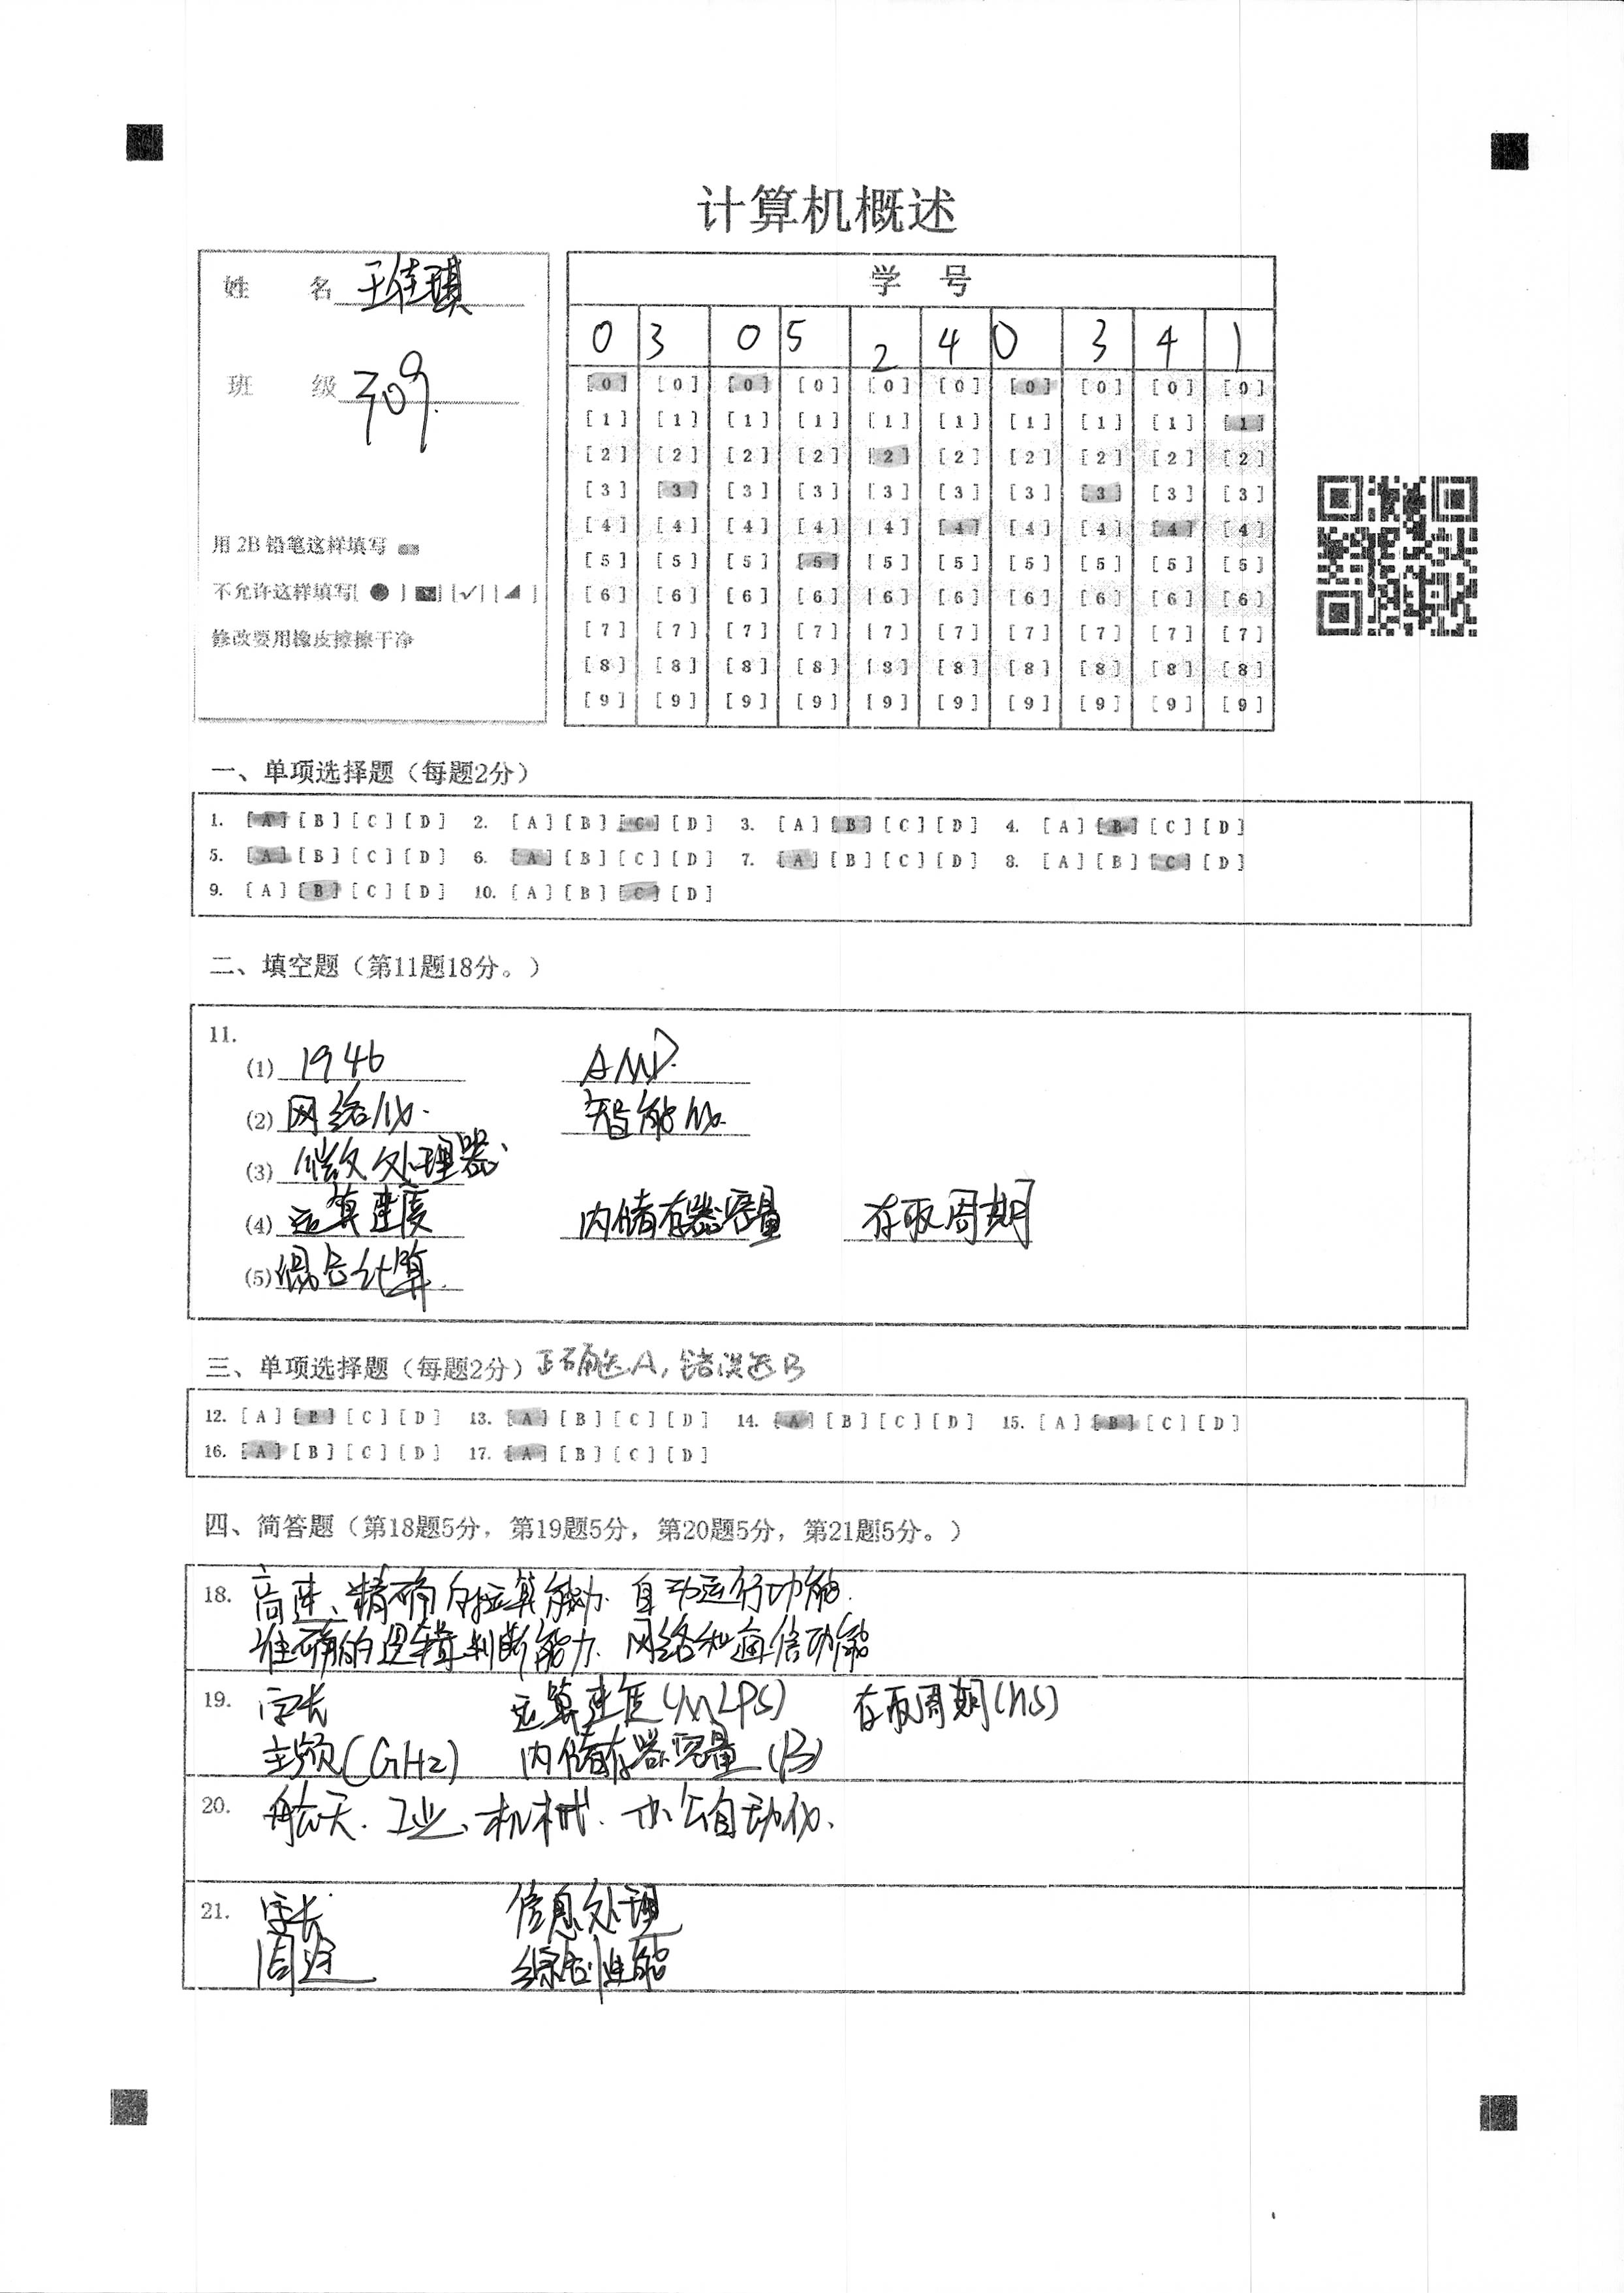 计算机概述
姓 名 王佳琪
班 级 309
用 2B 铅笔这样填写
不允许这样填写[ ● ] [ ] [✓] [◢ ]
修改要用橡皮擦擦干净
学 号
0 3 0 5 2 4 0 3 4 1
[0] [0] [0] [0] [0] [0] [0] [0] [0] [0]
[1] [1] [1] [1] [1] [1] [1] [1] [1] [1]
[2] [2] [2] [2] [2] [2] [2] [2] [2] [2]
[3] [3] [3] [3] [3] [3] [3] [3] [3] [3]
[4] [4] [4] [4] [4] [4] [4] [4] [4] [4]
[5] [5] [5] [5] [5] [5] [5] [5] [5] [5]
[6] [6] [6] [6] [6] [6] [6] [6] [6] [6]
[7] [7] [7] [7] [7] [7] [7] [7] [7] [7]
[8] [8] [8] [8] [8] [8] [8] [8] [8] [8]
[9] [9] [9] [9] [9] [9] [9] [9] [9] [9]
一、单项选择题（每题2分）
1. [A] [B] [C] [D] 2. [A] [B] [C] [D] 3. [A] [B] [C] [D] 4. [A] [B] [C] [D]
5. [A] [B] [C] [D] 6. [A] [B] [C] [D] 7. [A] [B] [C] [D] 8. [A] [B] [C] [D]
9. [A] [B] [C] [D] 10. [A] [B] [C] [D]
二、填空题（第11题18分。）
11.
(1) 1946 AMD.
(2) 网络化. 智能化.
(3) 微处理器
(4) 运算速度 内储存器容量 存取周期
(5) 计算.
三、单项选择题（每题2分）正确选A，错误选B
12. [A] [B] [C] [D] 13. [A] [B] [C] [D] 14. [A] [B] [C] [D] 15. [A] [B] [C] [D]
16. [A] [B] [C] [D] 17. [A] [B] [C] [D]
四、简答题（第18题5分，第19题5分，第20题5分，第21题5分。）
18. 高速、精确的运算能力. 自动运行功能.
准确的逻辑判断能力. 网络和通信功能
19. 字长 运算速度(MLPS) 存取周期(ns)
主频(GHz) 内储存器容量(B)
20. 航天. 工业、机械. 办公自动化、
21. 字长 信息处理
用途 综合性能